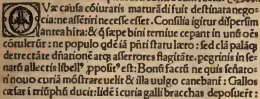 QVæ causa cōiuratis maturādi fuit destinata nego
cia: ne assētiri necesse esset. Consilia igitur dispersim
antea hita: & q̄ sæpe bini ternive cepant in unū oēs
cōtulerūt: ne populo qdē iā pn̄ti statu læto: sed clā palāq;
detrectāte dn̄ationē atq; assertores flagitāte. pegrinis in se-
natū allectis libell⁹ ,pposit⁹ est: Bonū factū ne quis senato-
ri nouo curiā mōstrare uelit & illa uulgo canebant: Gallos
cæsar ī triūphū ducit: idē ī curia galli bracchas deposuerūt: